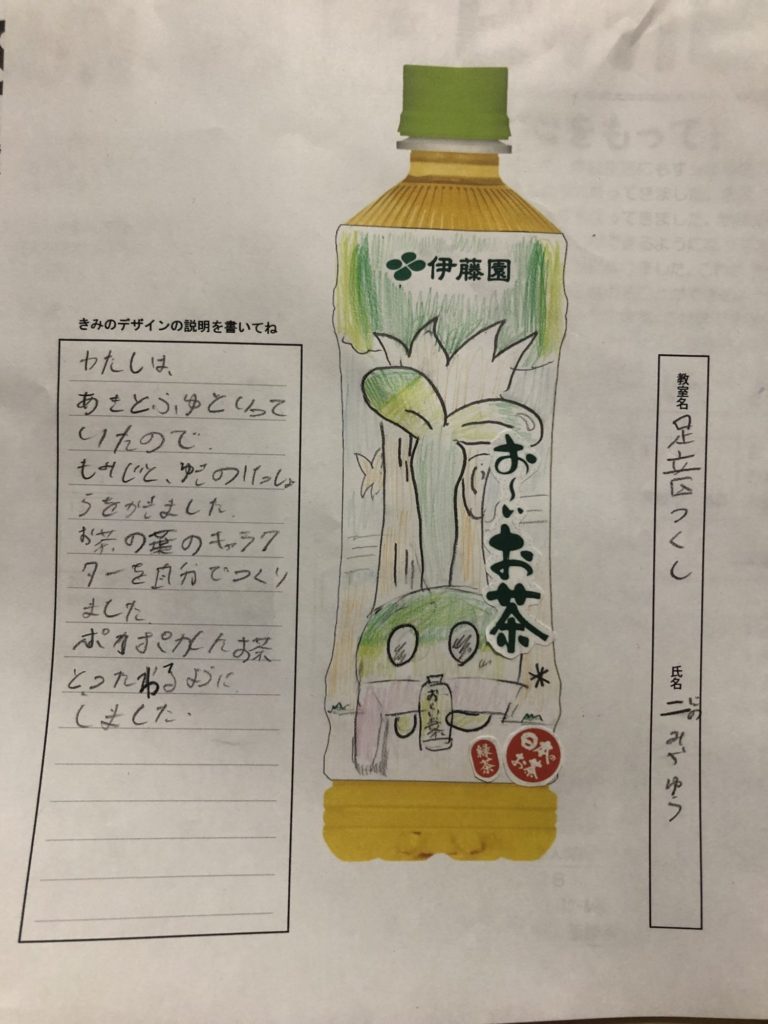 伊藤園
お〜いお茶
お〜いお茶
緑茶
日本のお茶
きみのデザインの説明を書いてね
わたしは、
あきとふゆといって
いたので、
もみじと、ゆきのけっしょ
うをかきました。
お茶の葉のキャラク
ターを自分でつくり
ました
お茶
とつたわるように
しました。
教室名
足立区つくし
氏名
みやゆう